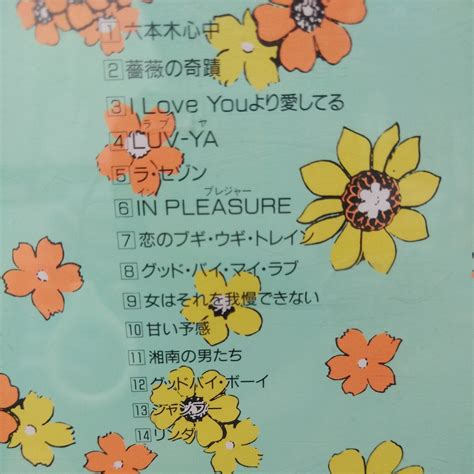 1 六本木心中
2 薔薇の奇蹟
3 I Love Youより愛してる
ラブ ヤ
4 LUV-YA
5 ラ・セゾン
イン プレジャー
6 IN PLEASURE
7 恋のブギ・ウギ・トレイン
8 グッド・バイ・マイ・ラブ
9 女はそれを我慢できない
10 甘い予感
11 湘南の男たち
12 グッドバイ・ボーイ
13 ジャンプー
14 リンダ